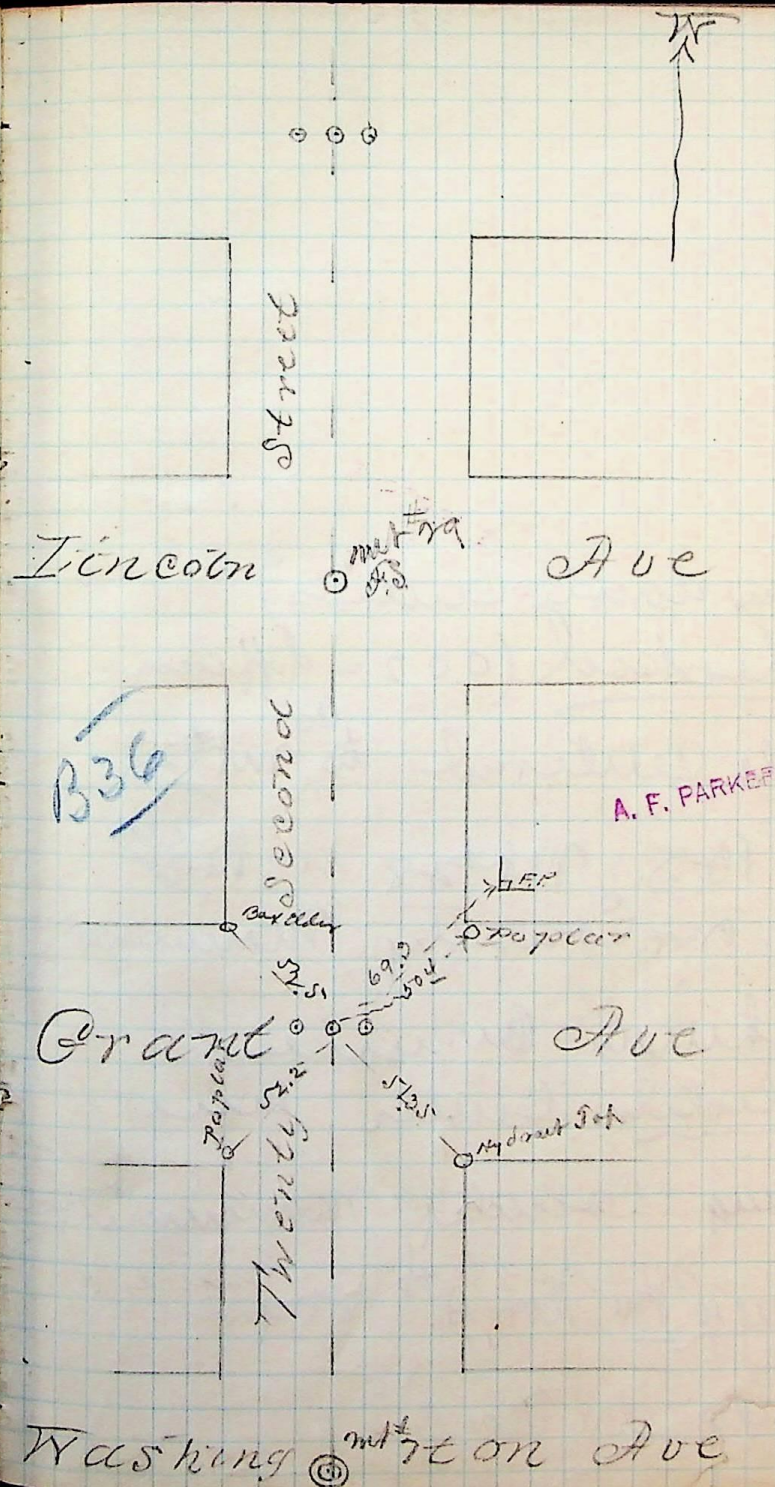 N
Street
Lincoln Ave
B36
Second
A. F. PARKER
Box elder
Poplar
69.9
50.4
Grant Ave
Poplar
52.2
Hydrant Top
Twenty
Washington Ave